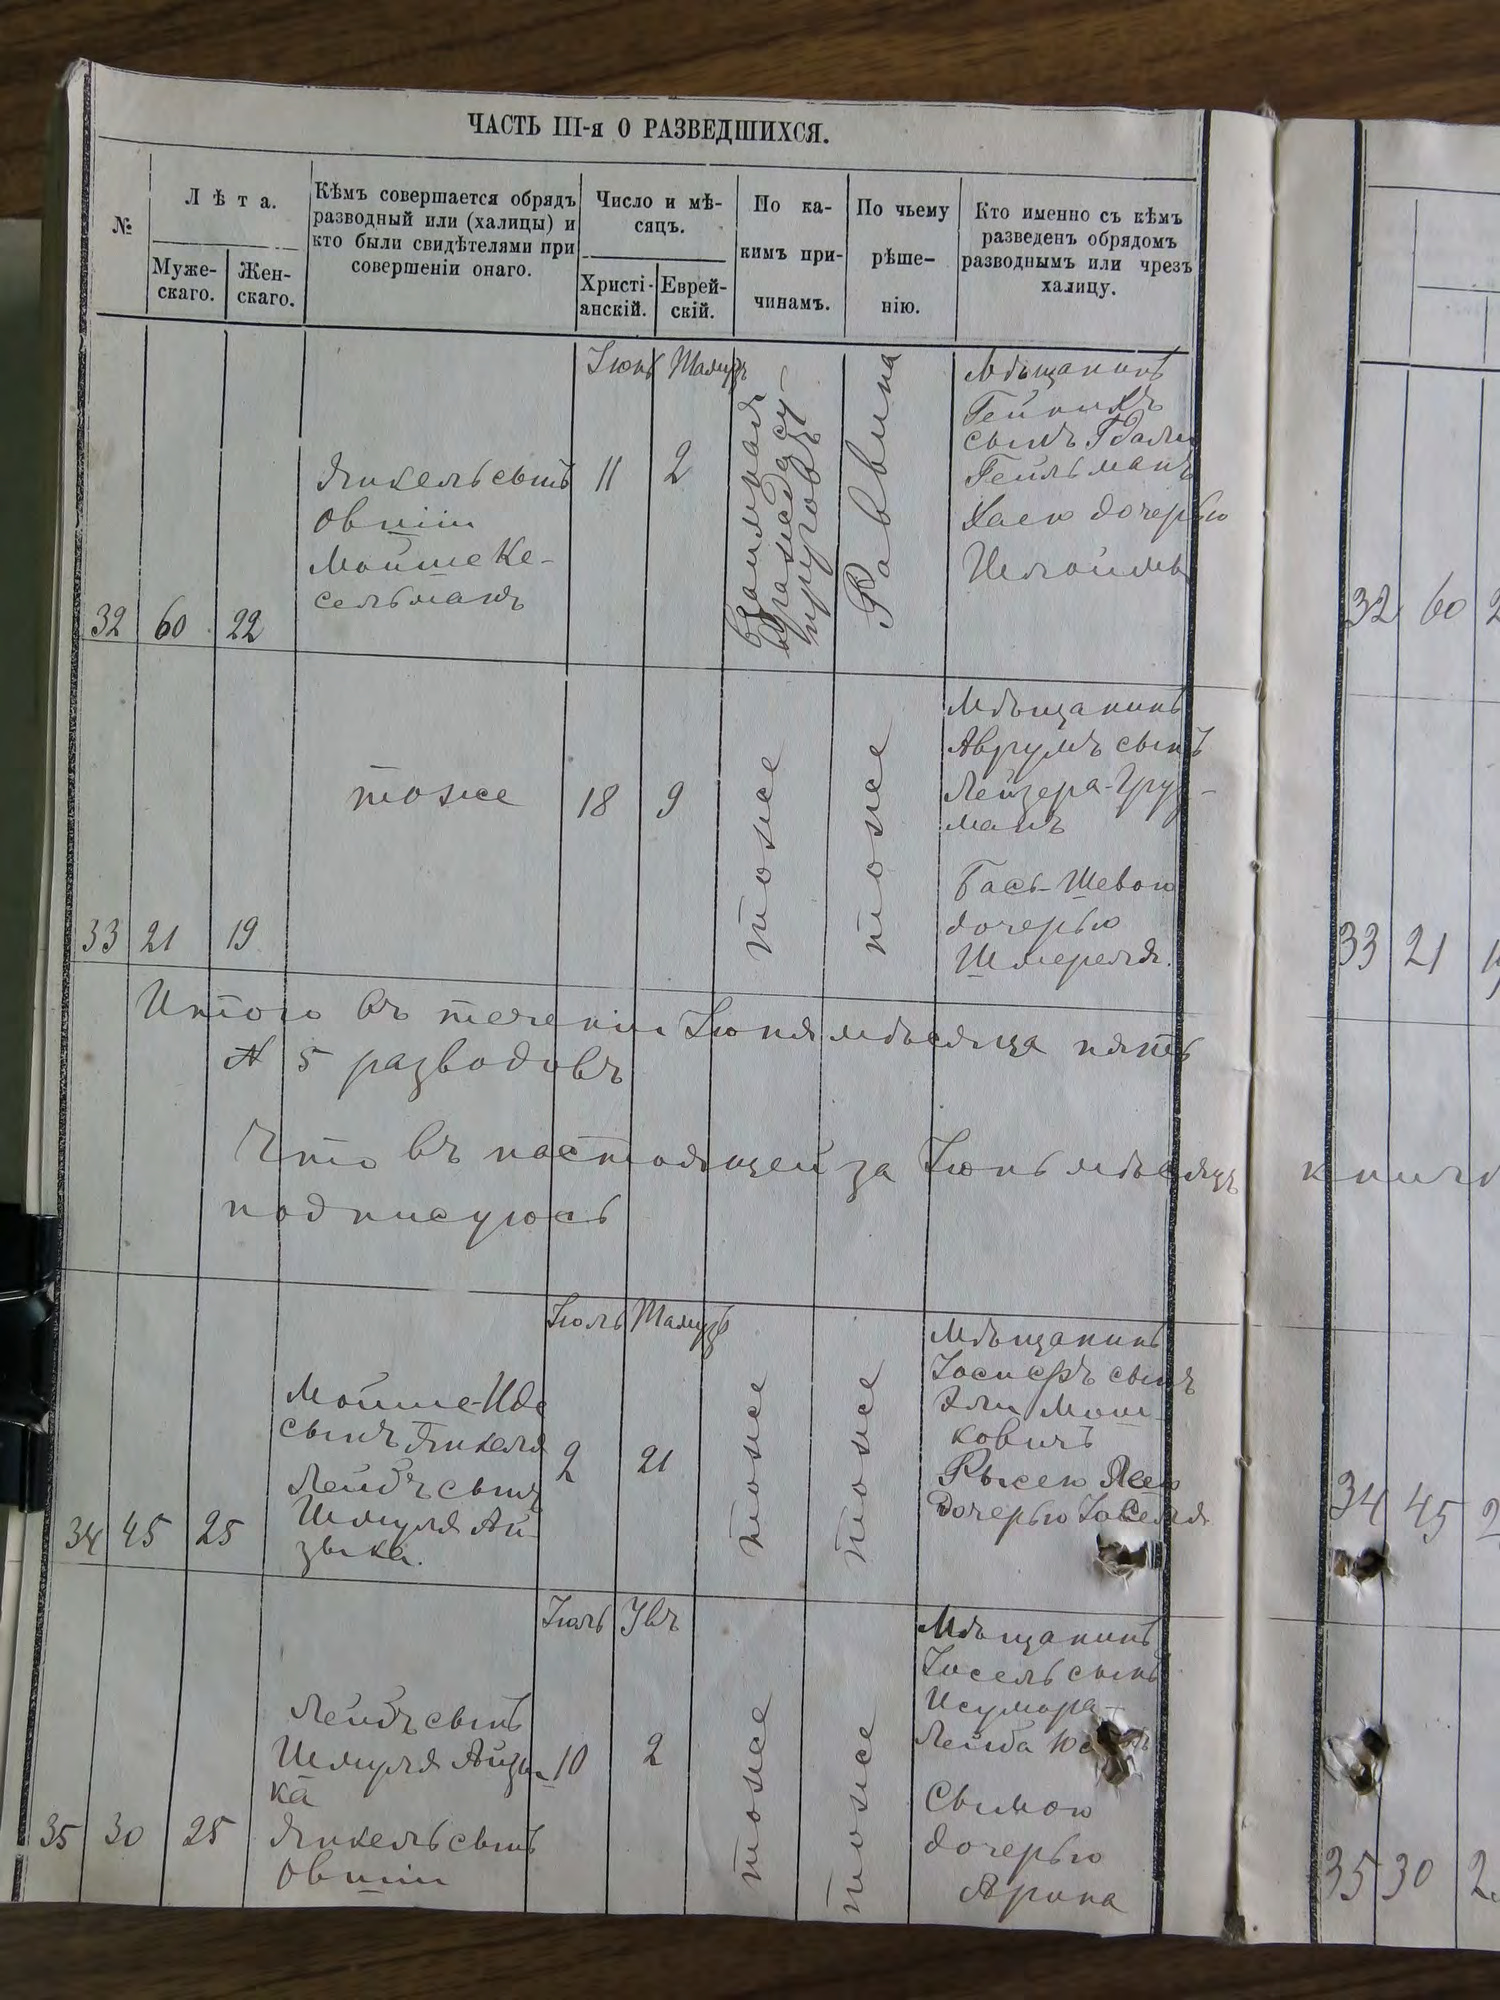 ЧАСТЬ III-я О РАЗВЕДШИХСЯ.
№
Лѣта.
Муже-
скаго.
Жен-
скаго.
Кѣмъ совершается обрядъ
разводный или (халицы) и
кто были свидѣтелями при
совершеніи онаго.
Число и мѣ-
сяцъ.
Христі-
анскій.
Еврей-
скій.
По ка-
кимъ при-
чинамъ.
По чьему
рѣше-
нію.
Кто именно съ кѣмъ
разведенъ обрядомъ
разводнымъ или чрезъ
халицу.
32
60
22
Янкель сынъ
Овшіи
Мойше Ке-
сельманъ
Іюнь
11
Тамузъ
2
Взаимная
вражда су-
пруговъ
Раввина
Мѣщанинъ
сынъ Гдали
Гейльманъ
Хаею дочерью
Шлоймы
33
21
19
тоже
18
9
тоже
тоже
Мѣщанинъ
Аврумъ сынъ
Лейзера-Груз-
манъ
Бась-Шевою
дочерью
Шмереля.
Итого въ теченіи Іюня мѣсяца пять
№ 5 разводовъ
Что въ настоящей за Іюнь мѣсяцъ
подписуюсь
34
45
25
Мойше-Иде
сынъ Янкеля
Лейбъ сынъ
Шмуля Ай-
зыка.
Іюль
2
Тамузъ
21
тоже
тоже
Мѣщанинъ
Іосифъ сынъ
Эли Мош-
ковичъ
Рысею
дочерью Іоселя
35
30
25
Лейбъ сынъ
Шмуля Айзы-
ка
Янкель сынъ
Овшіи
Іюль
10
Увъ
2
тоже
тоже
Мѣщанинъ
Іосель сынъ
Исумора-
Лейба
Симою
дочерью
Арона
32
60
2
33
21
книгѣ
34
45
2
35
30
2